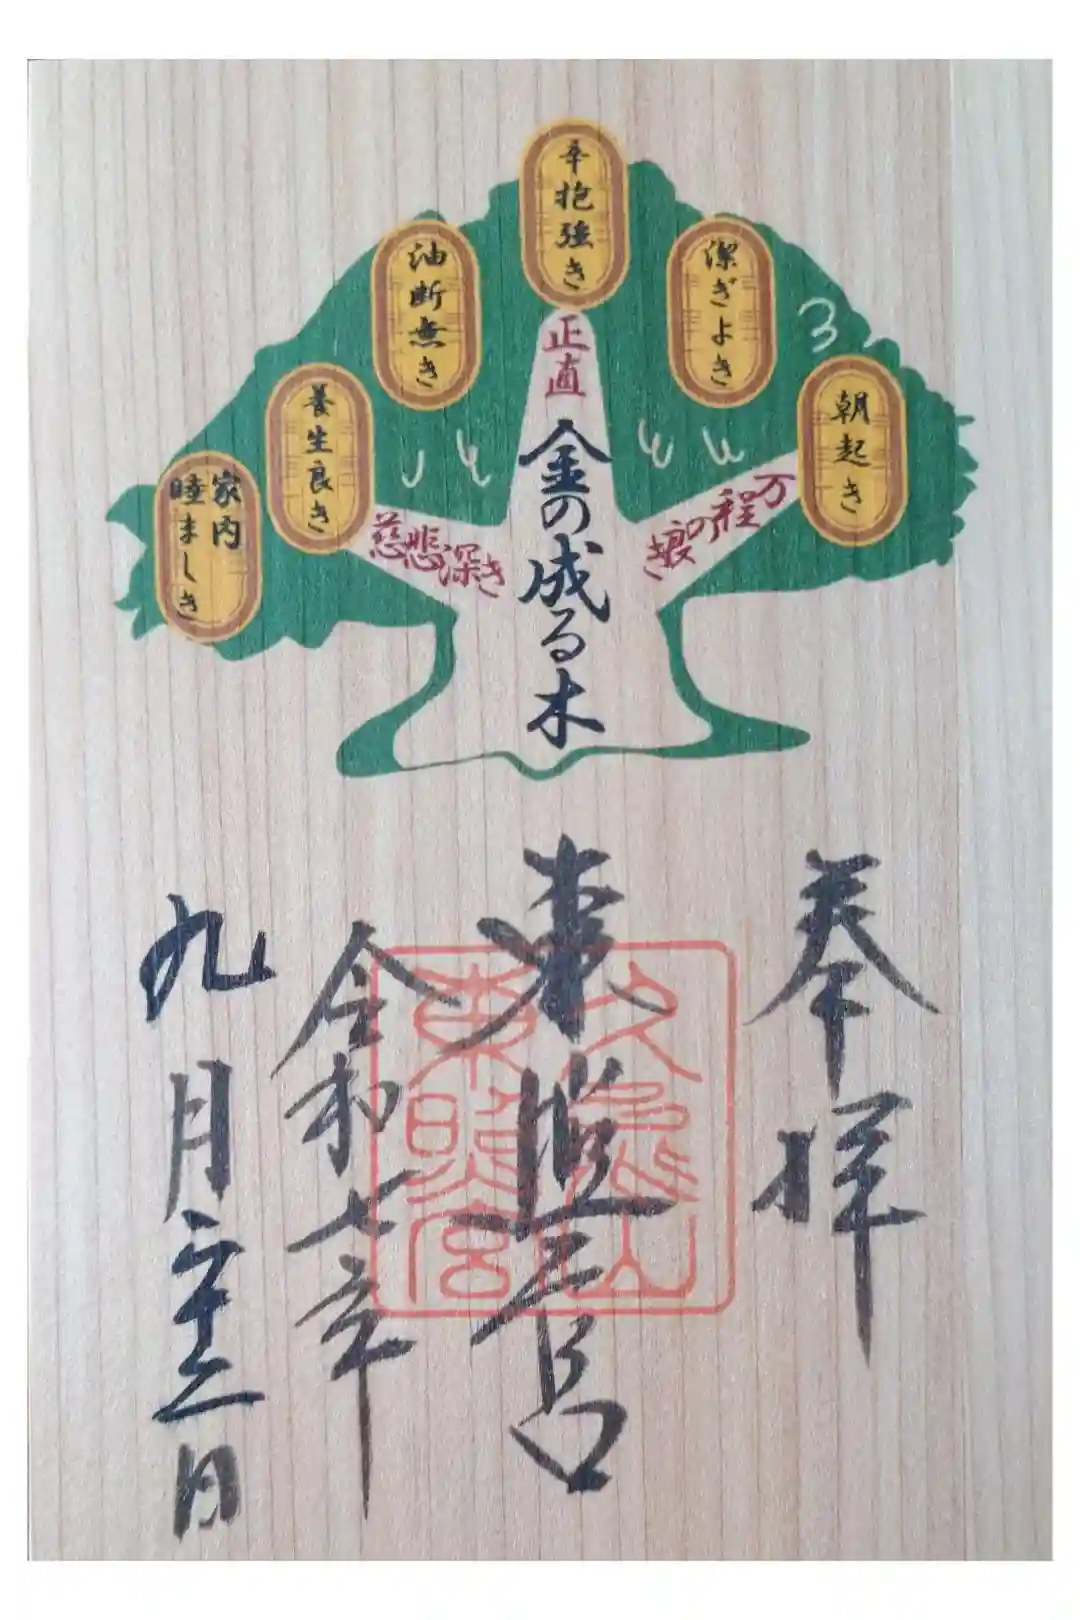 辛抱強き
潔ぎよき
油断無き
朝起き
養生良き
家内
睦ましき
正直
万の程の良き
慈悲深き
金の成る木
奉拝
東照宮
久能山
東照宮
令和七年
九月二十二日